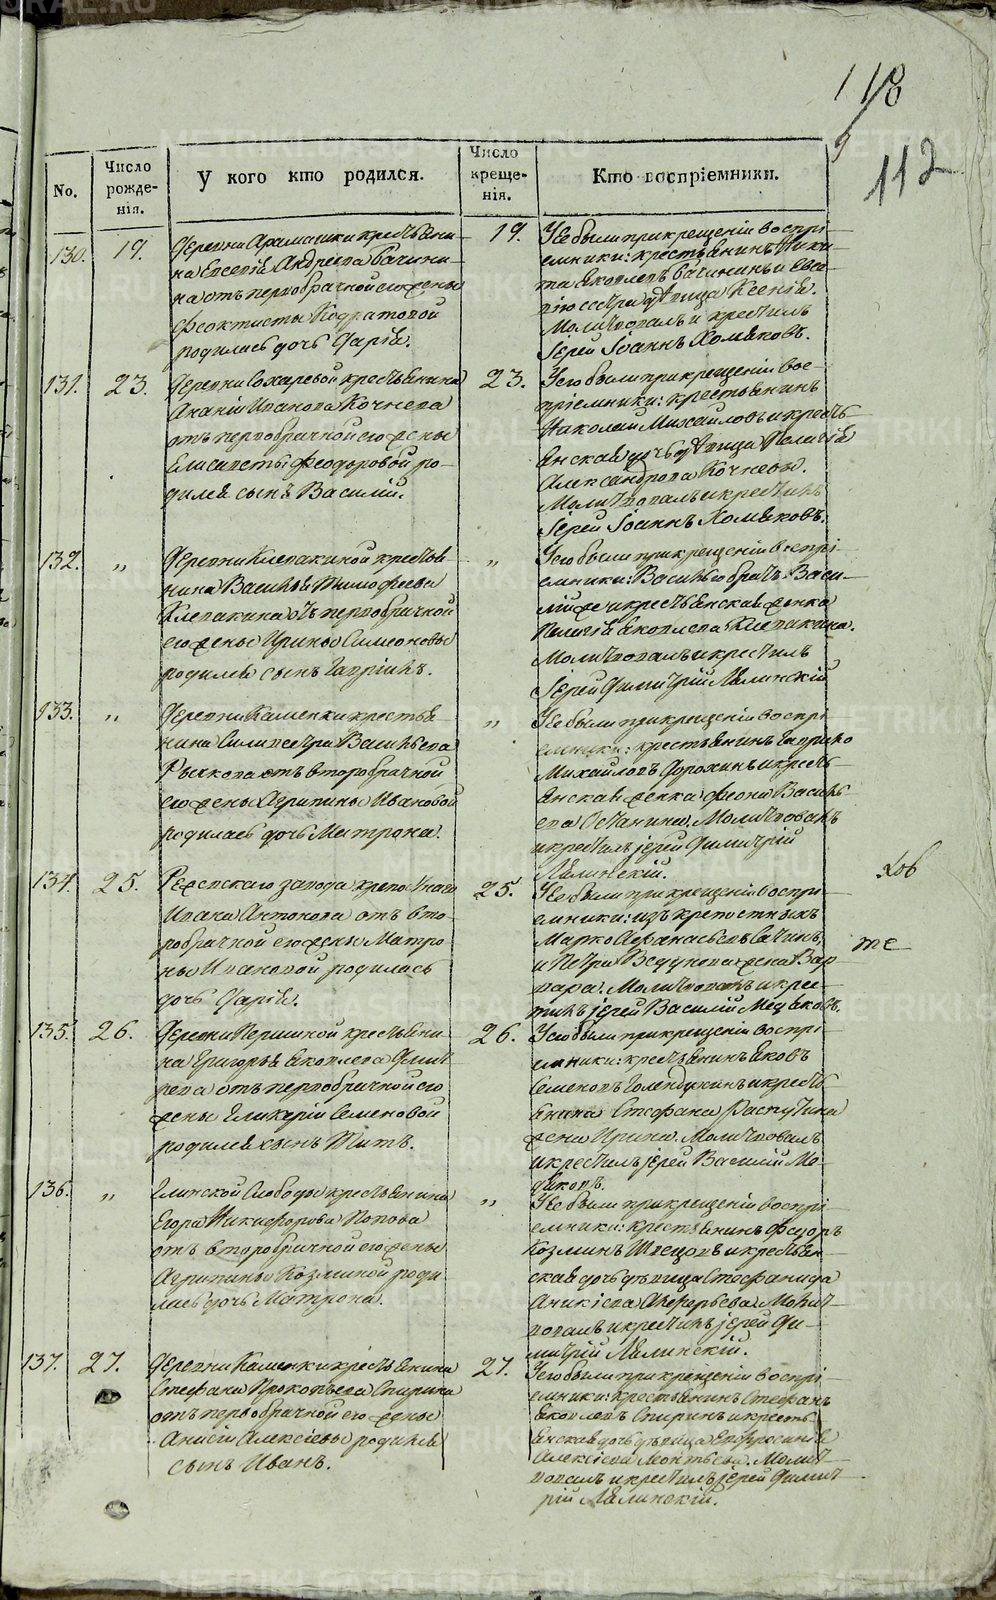 118
9
112
No.
Число рожде-
нія.
У кого кто родился.
Число креще-
нія.
Кто воспріемники.
130.
19.
Деревни Арамашки крестьяни-
на Евсевія Андреева Бачини-
на отъ первобрачной его жены
Феоктисты Кодратовой
родилась дочь Дарія.
19.
У ее были при крещеніи воспрі-
емники: крестьянинъ Ники-
та Яковлевъ Бачининъ и Евсе-
вію сестра девица Ксенія.
Молитвовалъ и крестилъ
Іерей Іоаннъ Хомяковъ.
131.
23.
Деревни Сохаревой крестьянина
Анания Иванова Кочнева
отъ первобрачной его жены
Елисаветы Феодоровой ро-
дился сынъ Василій.
23.
У его были при крещеніи вос-
пріемники: крестьянинъ
Николай Михайловъ и кресть-
янская дочь девица Пелагія
Александрова Кочневы.
Молитвовалъ и крестилъ
Іерей Іоаннъ Хомяковъ.
132.
„
Деревни Клевакиной крестья-
нина Василья Тимофеева
Клевакина отъ первобрачной
его жены Ирины Симеоновы
родился сынъ Гавріилъ.
„
У его были при крещеніи воспрі-
емники: Василью братъ Васи-
лій же и крестьянская женка
Пелагія Яковлева Клевакина.
Молитвовалъ и крестилъ
Іерей Димитрій Ляпинскій
133.
„
Деревни Каменки крестья-
нина Силивестра Васильева
Рычкова отъ второбрачной
его жены Агрипины Ивановой
родилась дочь Матрона.
„
У ее были при крещеніи воспрі-
емники: крестьянинъ Гаврило
Михайловъ Дорохинъ и кресть-
янская женка Феона Василь-
ева Останина. Молитвовалъ
и крестилъ іерей Димитрій
Ляпинскій.
134.
25.
Режевскаго завода крепостнаго
Ивана Антонова отъ вто-
робрачной его жены Матро-
ны Ивановой родилась
дочь Дарія.
25.
У ее были при крещеніи воспри-
емники: изъ крепостныхъ
Марко Афанасьевъ Сачинъ,
и Петра Ведунова жена Вар-
вара. Молитвовалъ и крес-
тилъ іерей Василій
135.
26.
Деревни Першиной крестьяни-
на Григорья Яковлева
отъ первобрачной его
жены Гликеріи Семеновой
родился сынъ Титъ.
26.
У его были при крещеніи воспрі-
емники: крестьянинъ Яковъ
Семеновъ Голендухинъ и кресть-
янина Стефана Распутина
жена Ирина. Молитвовалъ
и крестилъ іерей Василій
136.
„
Глинской Слободы крестьянина
Егора Никифорова Попова
отъ второбрачной его жены
Агрипины Козминой роди-
лась дочь Матрона.
„
У ее были при крещеніи воспрі-
емники: крестьянинъ Федоръ
Козминъ Швецовъ и крестьян-
ская дочь девица Стефанида
Аникіева Молит-
вовалъ и крестилъ іерей Ди-
митрій Ляпинскій.
137.
27.
Деревни Каменки крестьянина
Стефана Прокопьева Спирина
отъ первобрачной его жены
Анисіи Алексіевы родился
сынъ Иванъ.
27.
У его были при крещеніи воспрі-
емники: крестьянинъ Стефанъ
Яковлевъ Спиринъ и кресть-
янская дочь девица Евфросинія
Алексіева Молит-
вовалъ и крестилъ іерей Димит-
рій Ляпинскій.